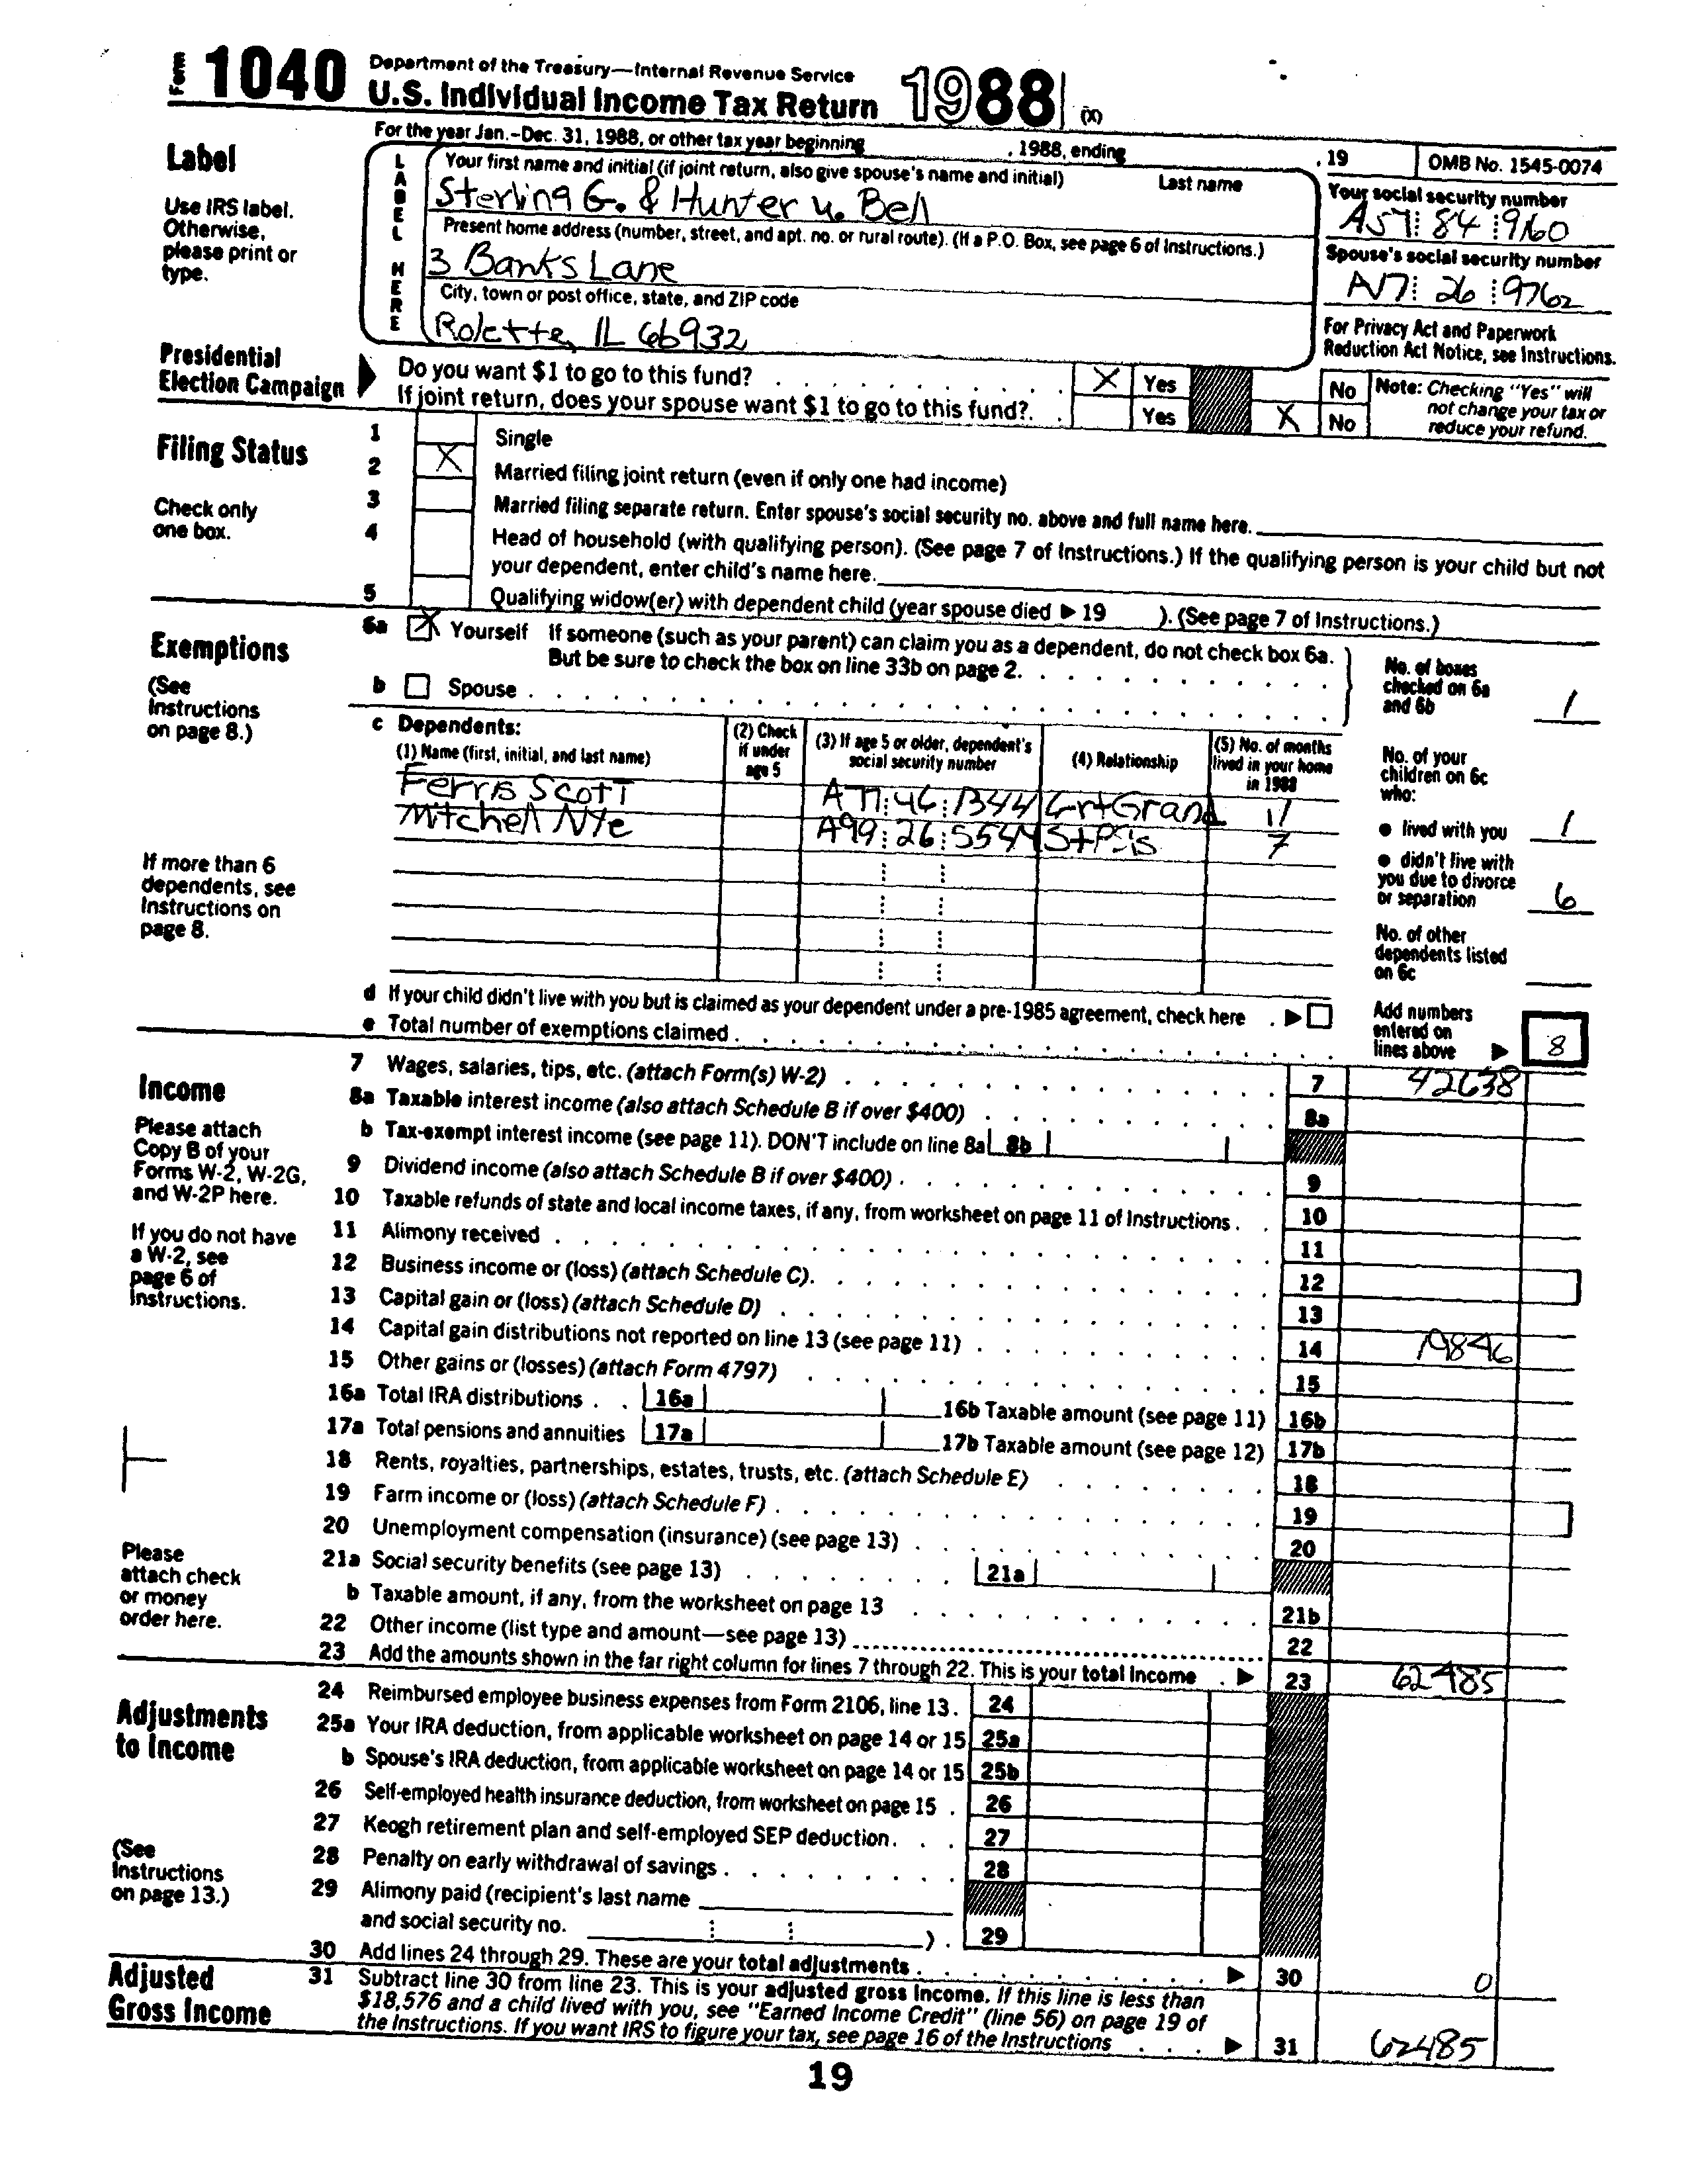 Form 1040 Department of the Treasury—Internal Revenue Service
U.S. Individual Income Tax Return 1988 (X)
For the year Jan.-Dec. 31, 1988, or other tax year beginning , 1988, ending , 19 OMB No. 1545-0074
Label
Use IRS label. Otherwise, please print or type.
LABEL HERE
Your first name and initial (if joint return, also give spouse's name and initial) Last name
Sterling G. & Hunter U. Bell
Your social security number
A57 84 9160
Present home address (number, street, and apt. no. or rural route). (If a P.O. Box, see page 6 of Instructions.)
3 Banks Lane
Spouse's social security number
A17 26 9762
City, town or post office, state, and ZIP code
Rolette, IL 66932
For Privacy Act and Paperwork Reduction Act Notice, see Instructions.
Presidential Election Campaign
Do you want $1 to go to this fund? X Yes No
If joint return, does your spouse want $1 to go to this fund? Yes X No
Note: Checking "Yes" will not change your tax or reduce your refund.
Filing Status
Check only one box.
1 Single
2 X Married filing joint return (even if only one had income)
3 Married filing separate return. Enter spouse's social security no. above and full name here.
4 Head of household (with qualifying person). (See page 7 of Instructions.) If the qualifying person is your child but not
your dependent, enter child's name here.
5 Qualifying widow(er) with dependent child (year spouse died ▶ 19 ). (See page 7 of Instructions.)
Exemptions
(See Instructions on page 8.)
6a X Yourself If someone (such as your parent) can claim you as a dependent, do not check box 6a.
But be sure to check the box on line 33b on page 2.
b Spouse
No. of boxes checked on 6a and 6b 1
c Dependents:
(1) Name (first, initial, and last name) (2) Check if under age 5 (3) If age 5 or older, dependent's social security number (4) Relationship (5) No. of months lived in your home in 1988
Ferris Scott A77 46 1344 GrtGrand 11
Mitchell Nye A99 26 5544 StPSis 7
If more than 6 dependents, see Instructions on page 8.
No. of your children on 6c who:
● lived with you 1
● didn't live with you due to divorce or separation 6
No. of other dependents listed on 6c
d If your child didn't live with you but is claimed as your dependent under a pre-1985 agreement, check here ▶
e Total number of exemptions claimed
Add numbers entered on lines above ▶ 8
Income
Please attach Copy B of your Forms W-2, W-2G, and W-2P here.
If you do not have a W-2, see page 6 of Instructions.
Please attach check or money order here.
7 Wages, salaries, tips, etc. (attach Form(s) W-2) 7 42638
8a Taxable interest income (also attach Schedule B if over $400) 8a
b Tax-exempt interest income (see page 11). DON'T include on line 8a 8b
9 Dividend income (also attach Schedule B if over $400) 9
10 Taxable refunds of state and local income taxes, if any, from worksheet on page 11 of Instructions 10
11 Alimony received 11
12 Business income or (loss) (attach Schedule C) 12
13 Capital gain or (loss) (attach Schedule D) 13
14 Capital gain distributions not reported on line 13 (see page 11) 14 19846
15 Other gains or (losses) (attach Form 4797) 15
16a Total IRA distributions 16a 16b Taxable amount (see page 11) 16b
17a Total pensions and annuities 17a 17b Taxable amount (see page 12) 17b
18 Rents, royalties, partnerships, estates, trusts, etc. (attach Schedule E) 18
19 Farm income or (loss) (attach Schedule F) 19
20 Unemployment compensation (insurance) (see page 13) 20
21a Social security benefits (see page 13) 21a
b Taxable amount, if any, from the worksheet on page 13 21b
22 Other income (list type and amount—see page 13) 22
23 Add the amounts shown in the far right column for lines 7 through 22. This is your total income ▶ 23 62485
Adjustments to Income
(See Instructions on page 13.)
24 Reimbursed employee business expenses from Form 2106, line 13. 24
25a Your IRA deduction, from applicable worksheet on page 14 or 15 25a
b Spouse's IRA deduction, from applicable worksheet on page 14 or 15 25b
26 Self-employed health insurance deduction, from worksheet on page 15 26
27 Keogh retirement plan and self-employed SEP deduction 27
28 Penalty on early withdrawal of savings 28
29 Alimony paid (recipient's last name
and social security no. ) 29
30 Add lines 24 through 29. These are your total adjustments ▶ 30 0
Adjusted Gross Income
31 Subtract line 30 from line 23. This is your adjusted gross income. If this line is less than
$18,576 and a child lived with you, see "Earned Income Credit" (line 56) on page 19 of
the Instructions. If you want IRS to figure your tax, see page 16 of the Instructions ▶ 31 62485
19